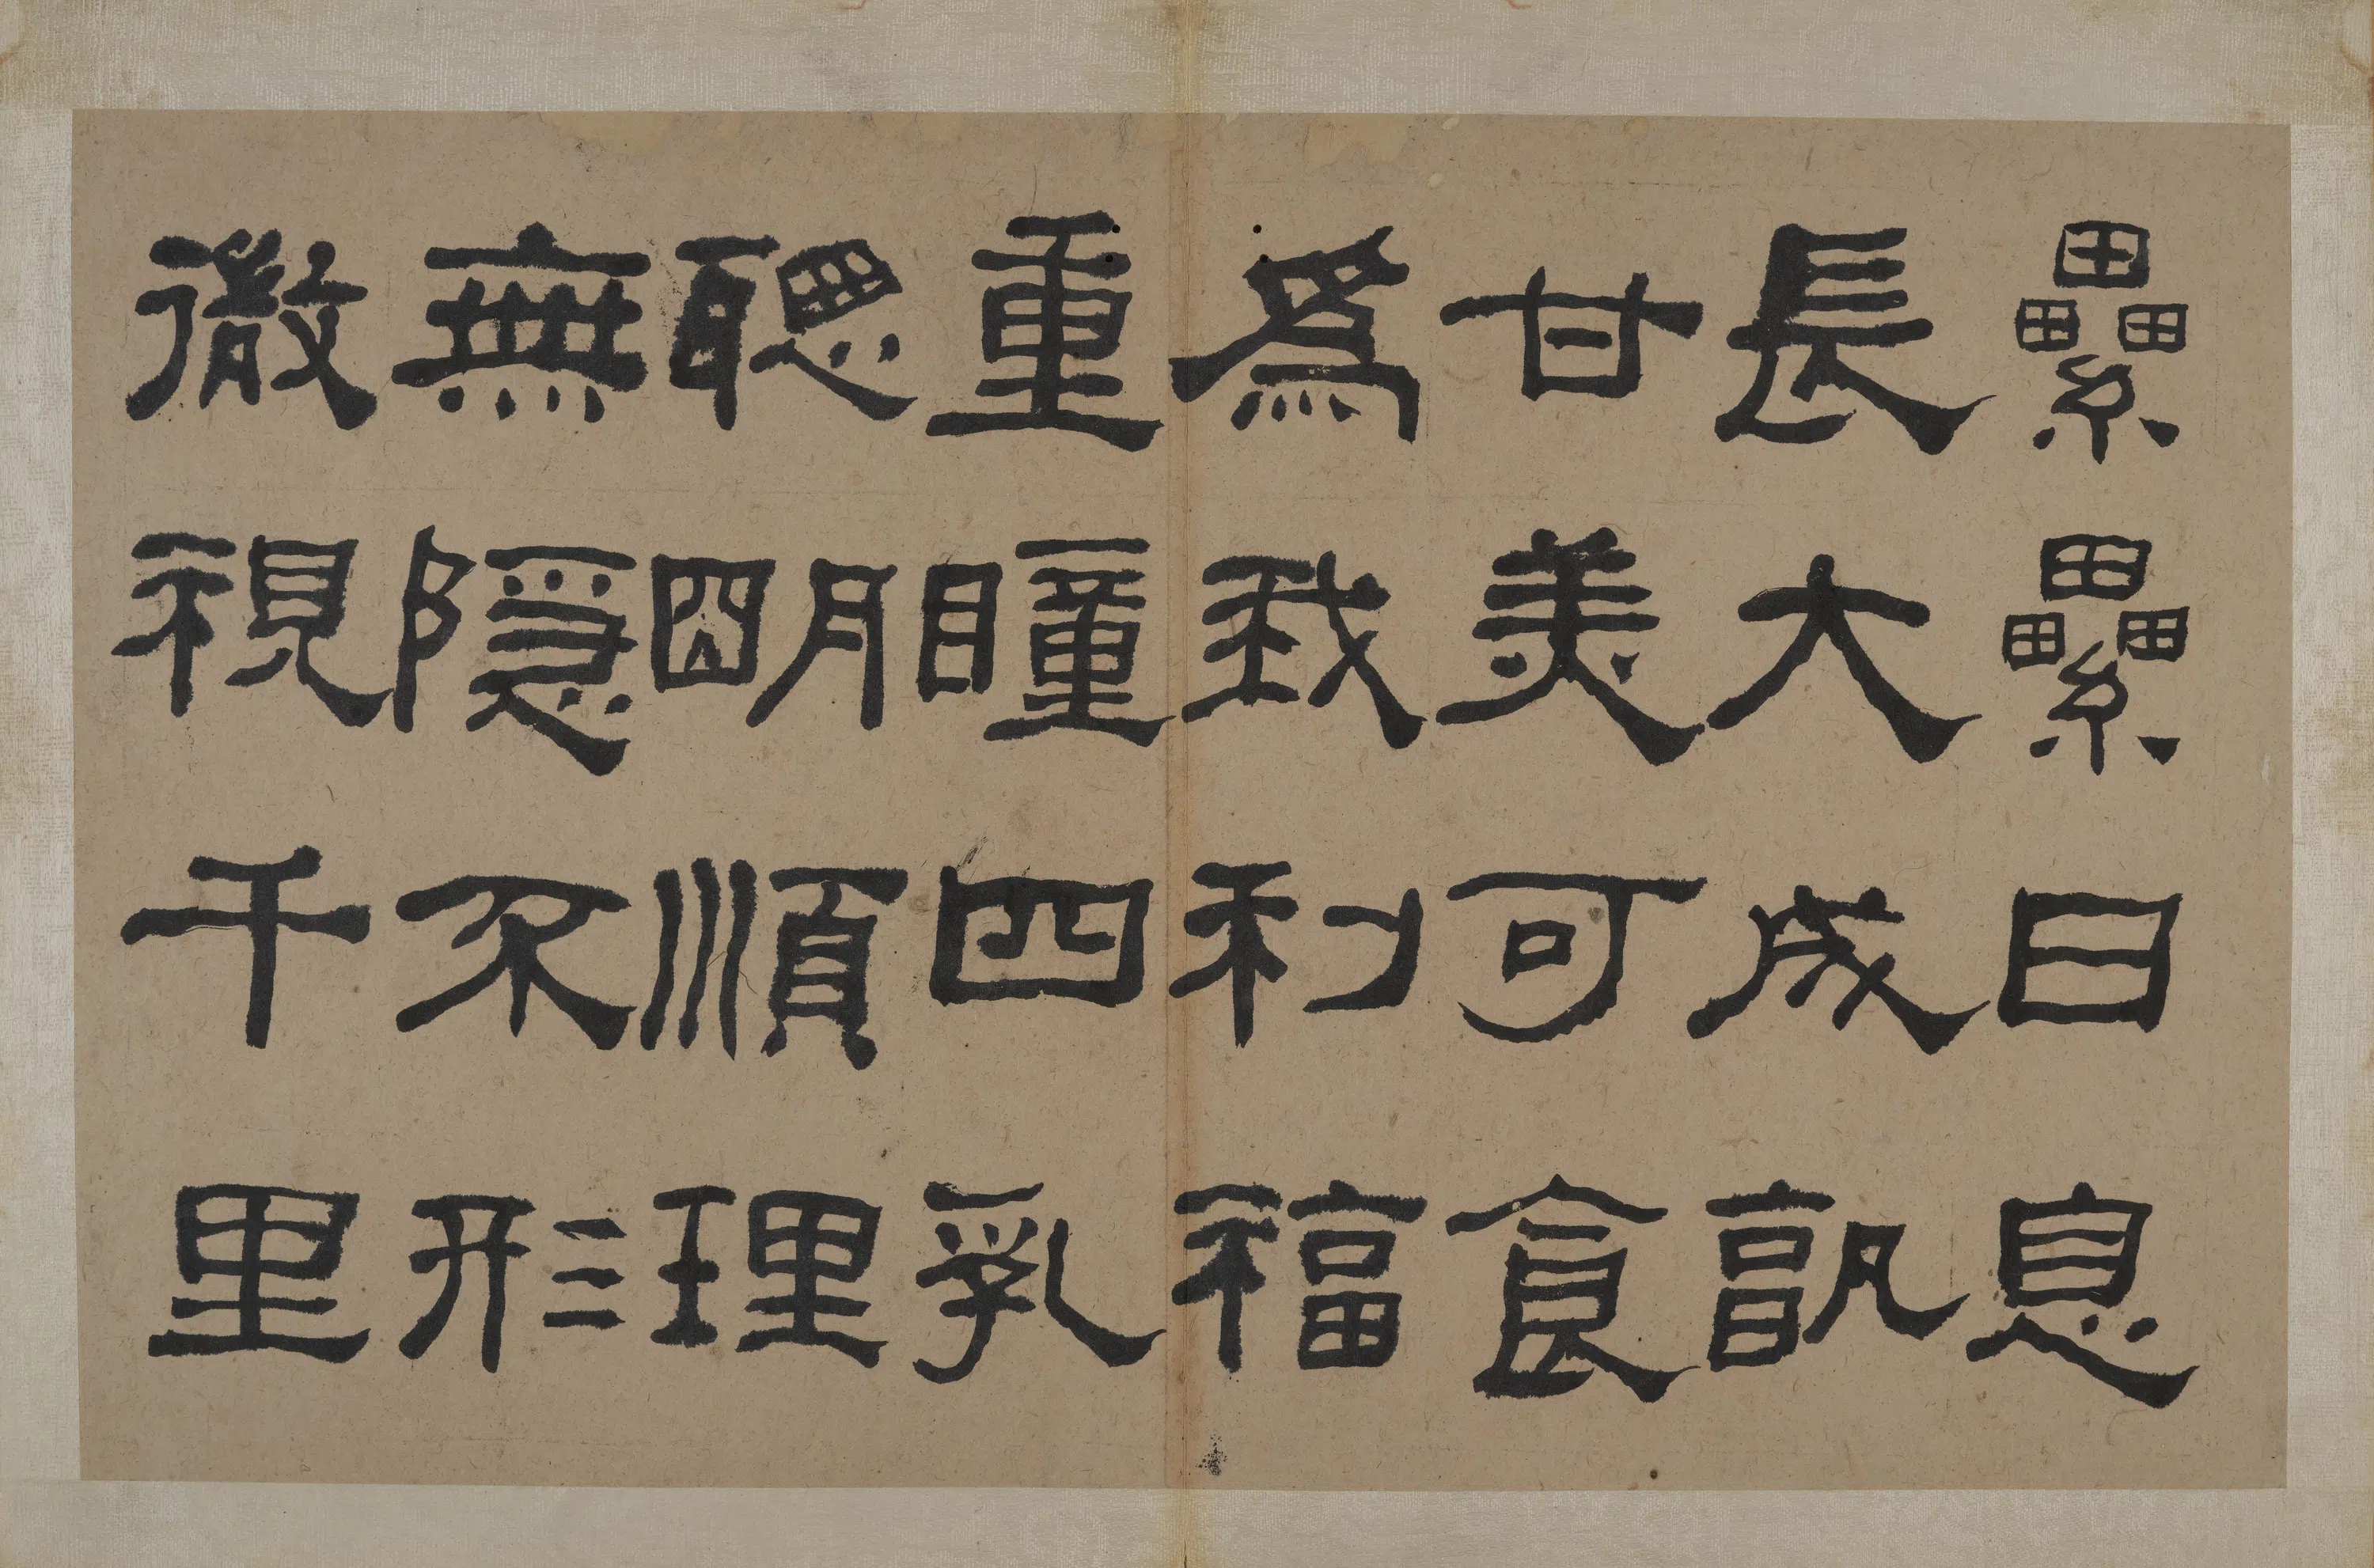 纍纍日息
長大成孰
甘美可食
爲我利福
重瞳四乳
聰朙順理
無隱不形
徹視千里